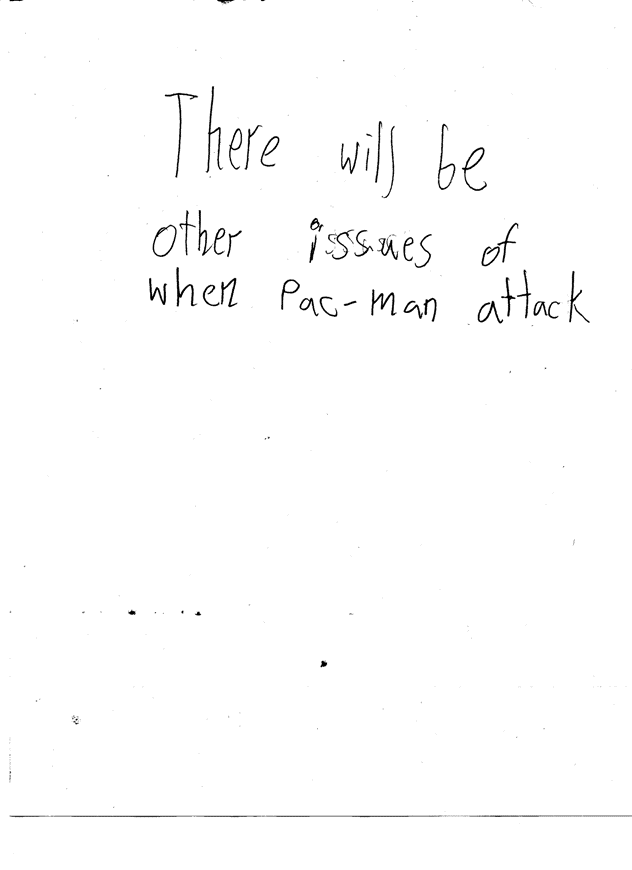 There will be
other isssues of
when Pac-man attack